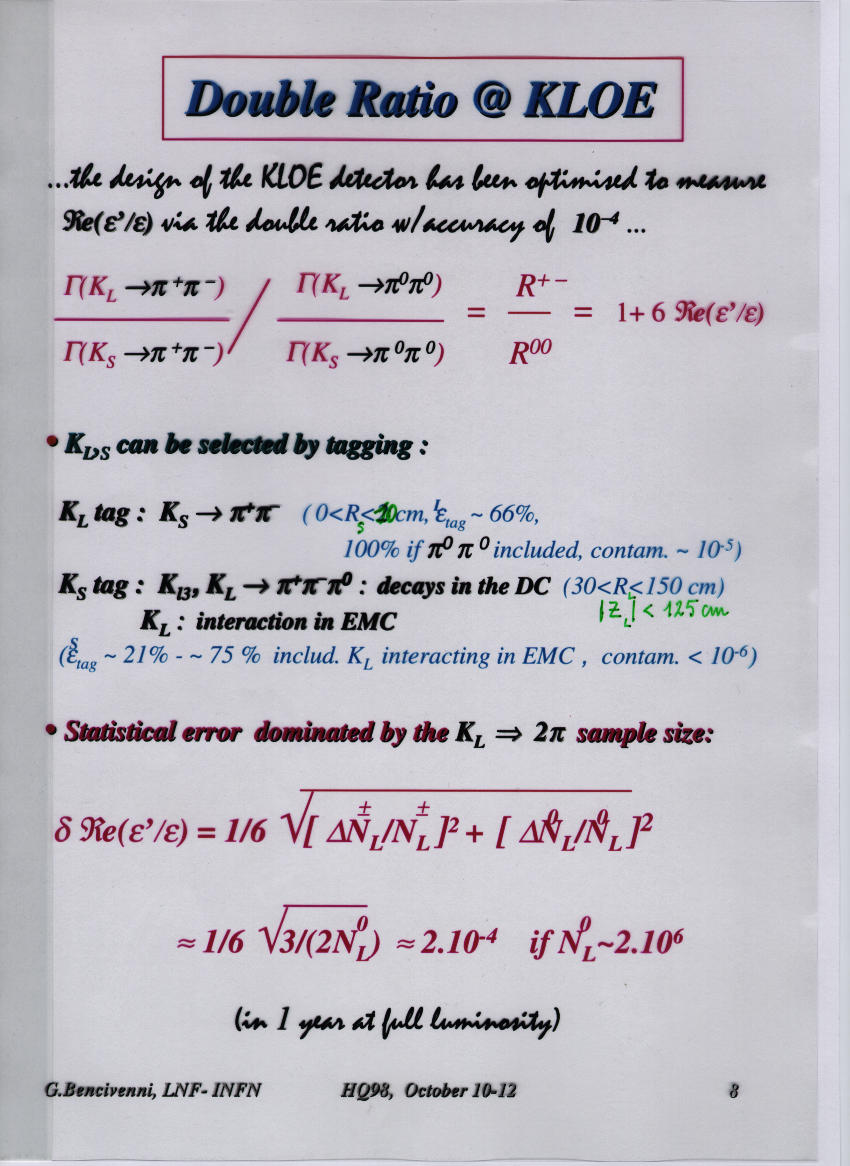 Double Ratio @ KLOE
...the design of the KLOE detector has been optimised to measure
ℜe(ε’/ε) via the double ratio w/accuracy of 10⁻⁴ ...
Γ(K_L →π⁺π⁻) / Γ(K_L →π⁰π⁰) = R⁺⁻ = 1+ 6 ℜe(ε’/ε)
Γ(K_S →π⁺π⁻) Γ(K_S →π⁰π⁰) R⁰⁰
• K_L,S can be selected by tagging :
K_L tag : K_S → π⁺π⁻ ( 0<R_S<10cm, ε^L_tag ~ 66%,
100% if π⁰ π⁰ included, contam. ~ 10⁻⁵)
K_S tag : K_l3, K_L → π⁺π⁻π⁰ : decays in the DC (30<R_L<150 cm)
|Z_L| < 125 cm
K_L : interaction in EMC
(ε^S_tag ~ 21% - ~ 75 % includ. K_L interacting in EMC , contam. < 10⁻⁶)
• Statistical error dominated by the K_L ⇒ 2π sample size:
δ ℜe(ε’/ε) = 1/6 √[ ΔN^±_L/N^±_L ]² + [ ΔN⁰_L/N⁰_L ]²
≈ 1/6 √3/(2N⁰_L) ≈ 2.10⁻⁴ if N⁰_L~2.10⁶
(in 1 year at full luminosity)
G.Bencivenni, LNF- INFN HQ98, October 10-12 8